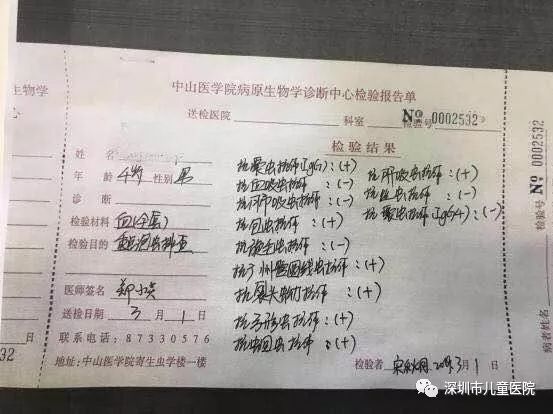 生物学
中山医学院病原生物学诊断中心检验报告单
送检医院 科室 检验号 № 0002532
检验结果
姓名
年龄 4岁 性别 男
诊断
检验材料 血(全蛋)
检验目的
医师签名 郑小英
送检日期 3月1日
联系电话:87330576
地址:中山医学院寄生虫学楼一楼
抗囊虫抗体(IgG):(+) 抗肝吸虫抗体:(+)
抗血吸虫抗体:(-) 抗丝虫抗体:(-)
抗肺吸虫抗体:(-) 抗囊虫抗体(IgG4):(-)
抗包虫抗体:(+)
抗旋毛虫抗体:(-)
抗广州管圆线虫抗体:(+)
抗裂头蚴抗体:(+)
抗弓形虫抗体:(+)
抗蛔虫抗体:(+)
检验者 2019 3月1日
检验号 № 0002532
病者姓名
32 日
深圳市儿童医院